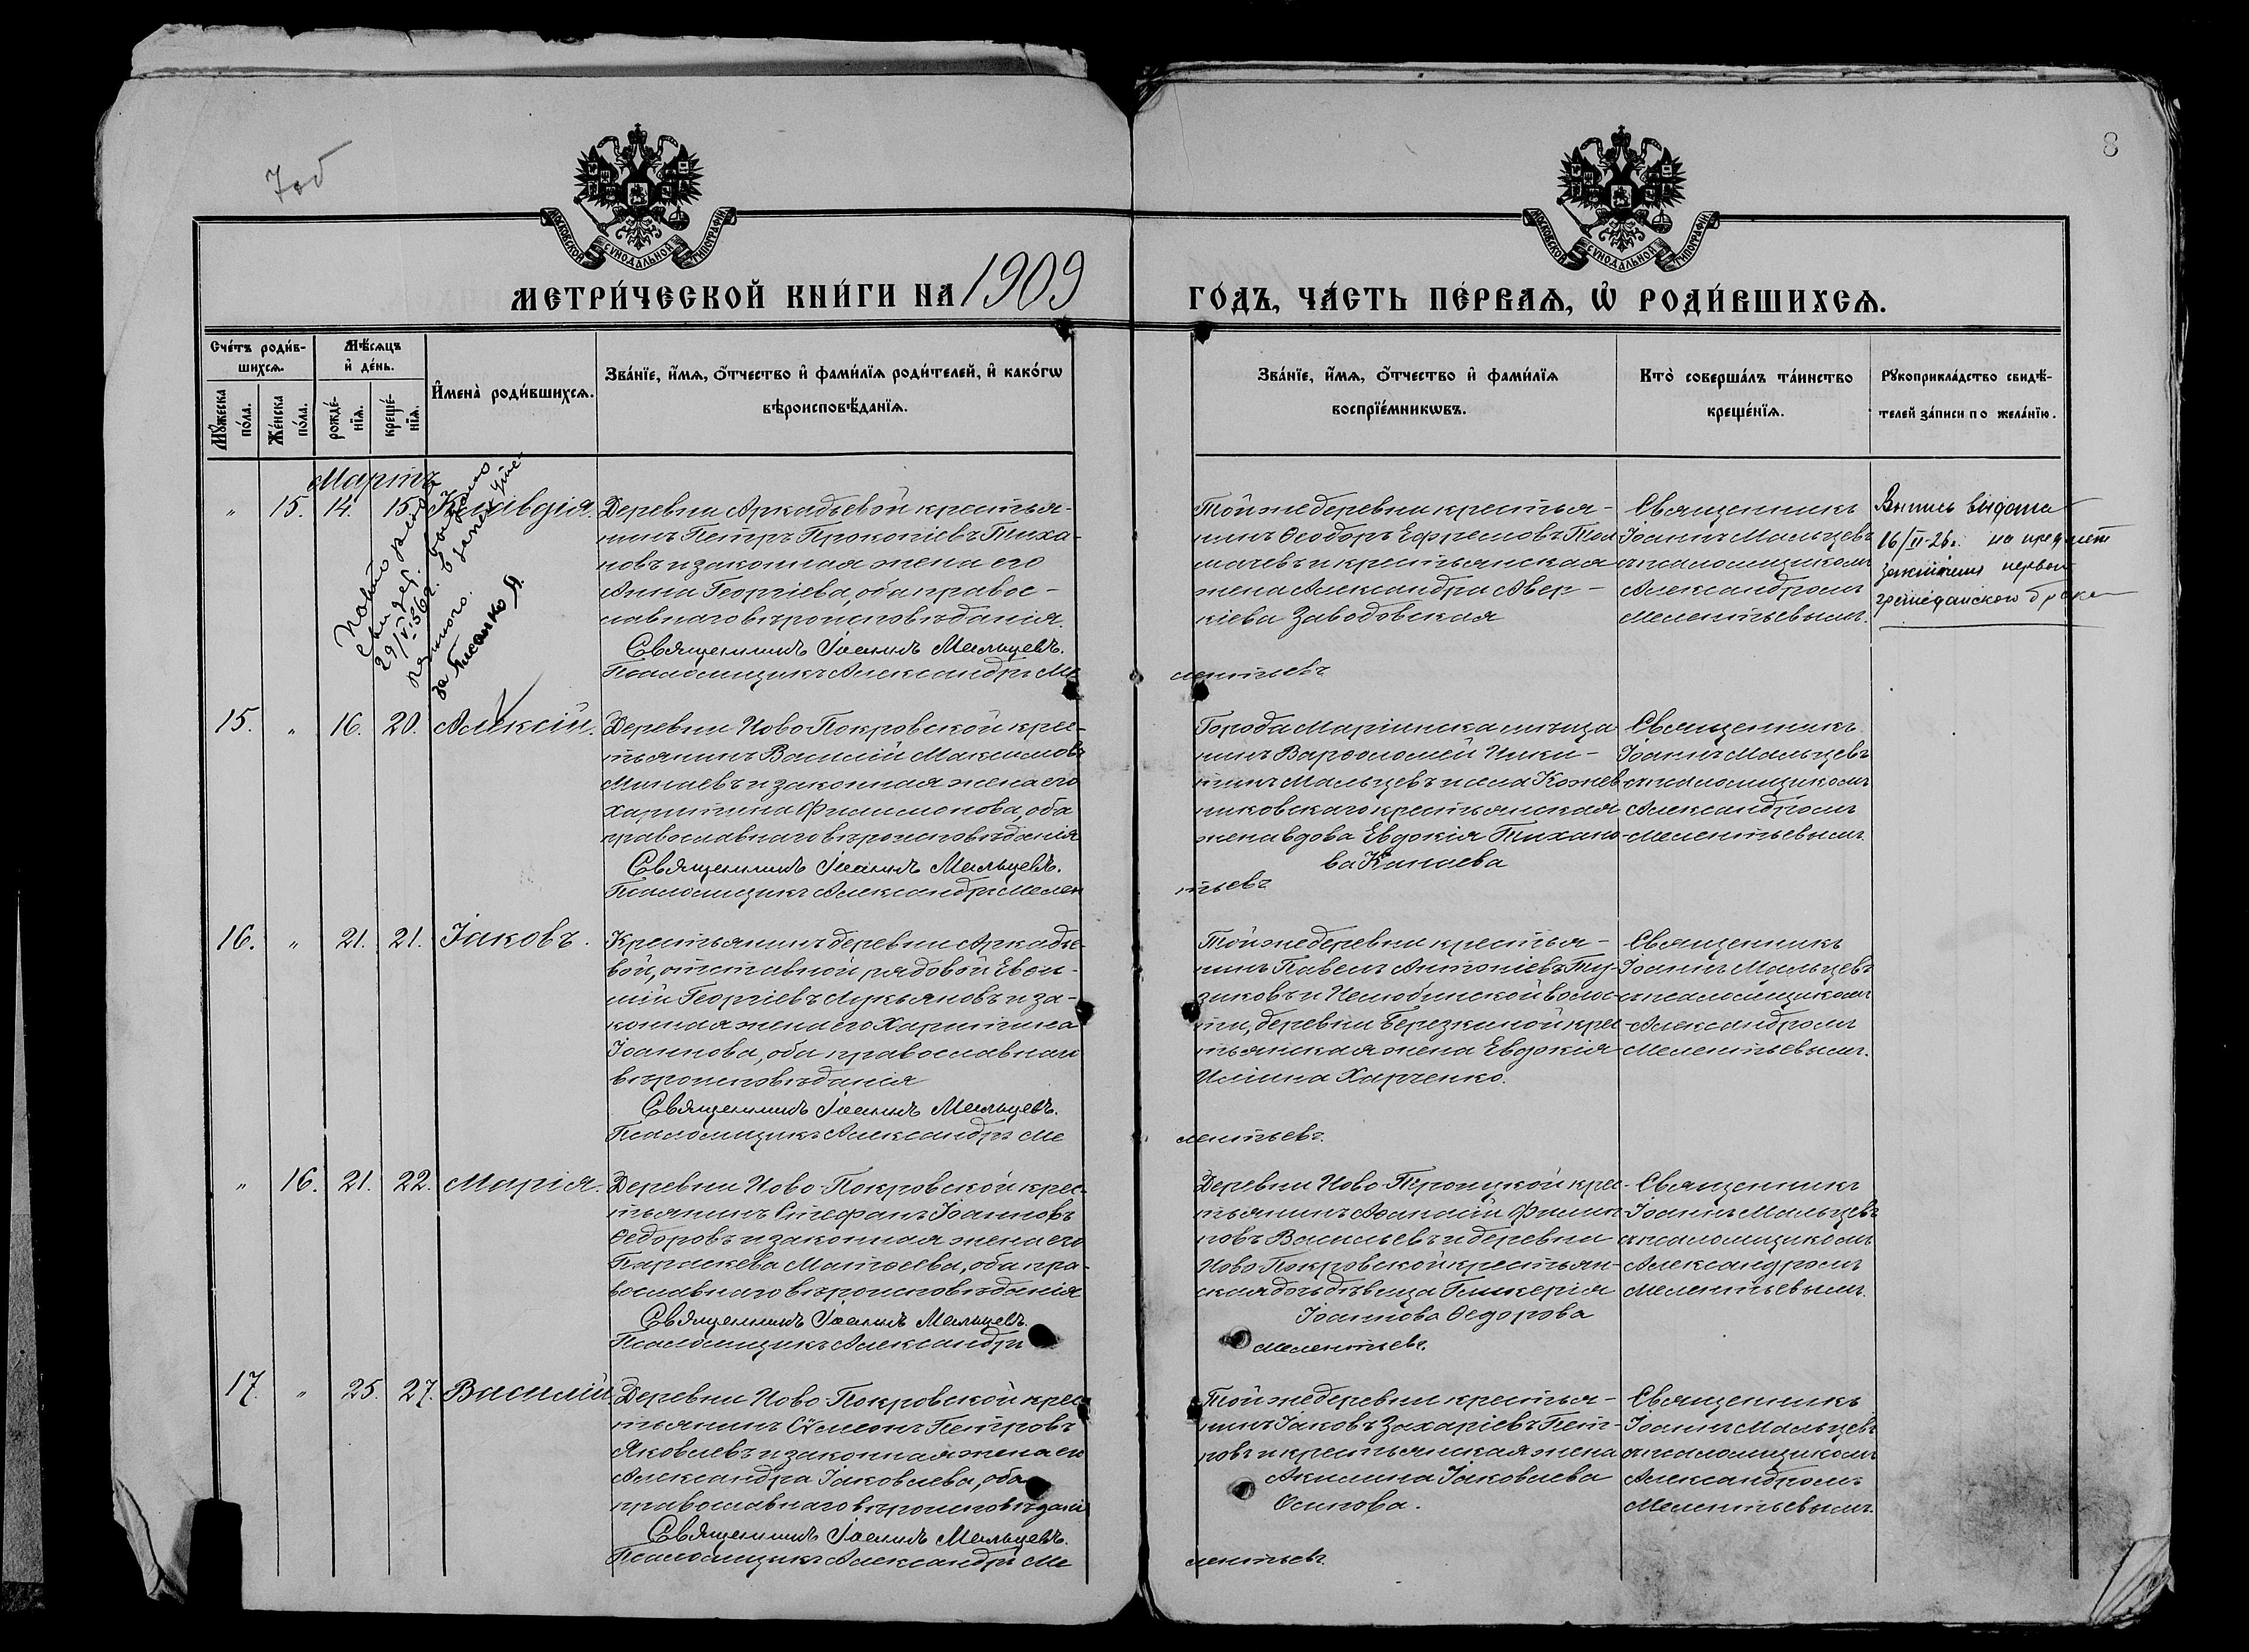 7об
8
МОСКОВСКОЙ СѴНОДАЛЬНОЙ ТИПОГРАФІИ
МОСКОВСКОЙ СѴНОДАЛЬНОЙ ТИПОГРАФІИ
МЕТРИ́ЧЕСКОЙ КНИ́ГИ НА 1909
ГО́ДЪ, ЧА́СТЬ ПЕ́РВАѦ, Ѡ҆ РОДИ́ВШИХСѦ.
Сче́тъ роди́в-
шихсѧ.
Мꙋ́жеска по́ла.
Же́нска по́ла.
Мѣ́сѧцъ
и҆ де́нь.
рожде́-
нїѧ.
креще́-
нїѧ.
И҆мена̀ роди́вшихсѧ.
Зва́нїе, и҆́мѧ, ѻ҆́тчество и҆ фами́лїѧ роди́телей, и҆ како́гѡ
вѣроисповѣ́данїѧ.
Зва́нїе, и҆́мѧ, ѻ҆́тчество и҆ фами́лїѧ
воспрїе́мникѡвъ.
Кто̀ соверша́лъ та́инство
креще́нїѧ.
Рꙋкоприкла́дство свидѣ́-
телей за́писи по жела́нїю.
Мартъ
" 15. 14. 15. Клавдія.
Деревни Аркадьевой крестья-
нинъ Петръ Прокопіевъ Тиха-
новъ и законная жена его
Анна Георгіева, оба правос-
лавнаго вѣроисповѣданія.
Священникъ Іоаннъ Мальцевъ.
Псаломщикъ Александръ Ме
Той же деревни крестья-
нинъ Ѳеодоръ Ефремовъ Тол
мачевъ и крестьянская
жена Александра Авер-
кіева Заводовская
лентьевъ
Священникъ
Іоаннъ Мальцевъ
съ псаломщикомъ
Александромъ
Мелентьевымъ.
Выпись выдана
16/II-26г. на предмет
заключения первого
гражданского брака
29/VI.56г. в
за Писанко А.
15. " 16. 20. Алексій.
Деревни Ново Покровской крес-
тьянинъ Василій Максимовъ
Минаевъ и законная жена его
Харитина Филимонова, оба
православнаго вѣроисповѣданія
Священникъ Іоаннъ Мальцевъ.
Псаломщикъ Александръ Мелен
Города Маріинска мѣща
нинъ Варѳоломей Ники-
тинъ Мальцевъ и села Кожев
никовскаго крестьянская
жена вдова Евдокія Тихано
ва Канаева
тьевъ
Священникъ
Іоаннъ Мальцевъ
съ псаломщикомъ
Александромъ
Мелентьевымъ.
16. " 21. 21. Іаковъ.
Крестьянинъ деревни Аркадье-
вой, отставной рядовой Евѳи-
мій Георгіевъ Лукьяновъ и за-
конная жена его Харитина
Іоаннова, оба православнаго
вѣроисповѣданія
Священникъ Іоаннъ Мальцевъ.
Псаломщикъ Александръ Ме
Той же деревни крестья-
нинъ Павелъ Антоніевъ Пу-
зиковъ и Нелюбинской волос-
ти, деревни Березкиной крес-
тьянская жена Евдокія
Иліина Харченко.
лентьевъ.
Священникъ
Іоаннъ Мальцевъ
съ псаломщикомъ
Александромъ
Мелентьевымъ.
" 16. 21. 22. Марія.
Деревни Ново-Покровской крес-
тьянинъ Стефанъ Іоанновъ
Ѳедоровъ и законная жена его
Параскева Матѳеева, оба пра-
вославнаго вѣроисповѣданія
Священникъ Іоаннъ Мальцевъ.
Псаломщикъ Александръ
Деревни Ново-Троицкой крес-
тьянинъ Аѳанасій Филип
повъ Васильевъ и деревни
Ново-Покровской крестьян-
ская дочь дѣвица Гликерія
Іоаннова Ѳедорова
Мелентьевъ.
Священникъ
Іоаннъ Мальцевъ
съ псаломщикомъ
Александромъ
Мелентьевымъ.
17. " 25. 27. Василій.
Деревни Ново-Покровской крес-
тьянинъ Сѵмеонъ Петровъ
Яковлевъ и законная жена его
Александра Іаковлева, оба
православнаго вѣроисповѣданія
Священникъ Іоаннъ Мальцевъ.
Псаломщикъ Александръ Ме
Той же деревни крестья-
нинъ Іаковъ Захаріевъ Пет-
ровъ и крестьянская жена
Акилина Іаковлева
Осипова.
лентьевъ.
Священникъ
Іоаннъ Мальцевъ
съ псаломщикомъ
Александромъ
Мелентьевымъ.